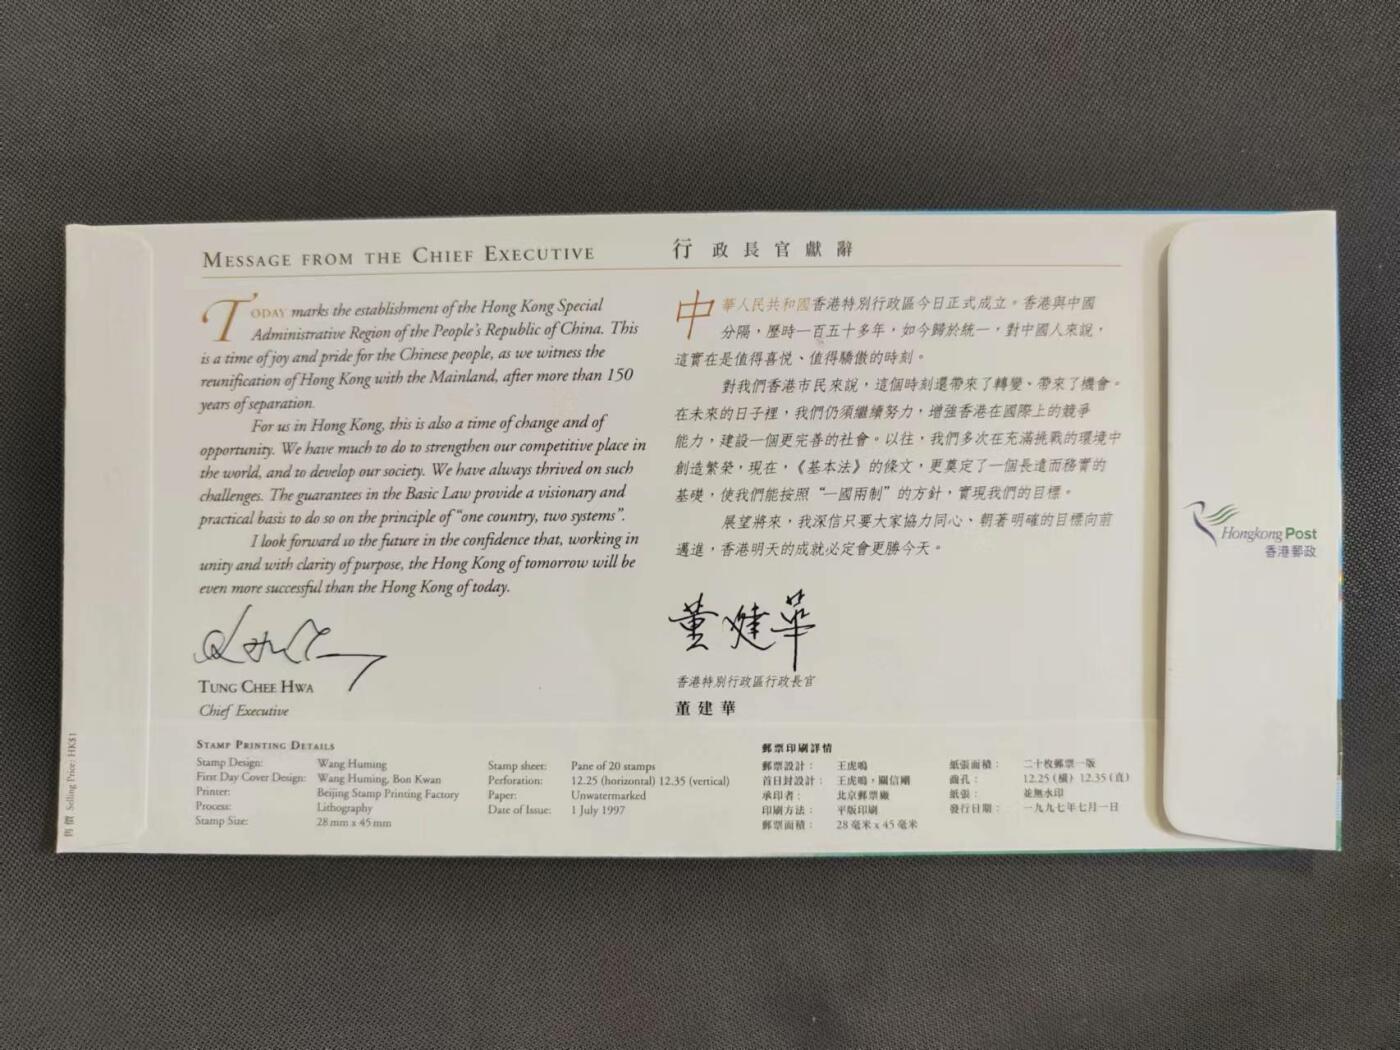 MESSAGE FROM THE CHIEF EXECUTIVE
TODAY marks the establishment of the Hong Kong Special
Administrative Region of the People's Republic of China. This
is a time of joy and pride for the Chinese people, as we witness the
reunification of Hong Kong with the Mainland, after more than 150
years of separation.
For us in Hong Kong, this is also a time of change and of
opportunity. We have much to do to strengthen our competitive place in
the world, and to develop our society. We have always thrived on such
challenges. The guarantees in the Basic Law provide a visionary and
practical basis to do so on the principle of "one country, two systems".
I look forward to the future in the confidence that, working in
unity and with clarity of purpose, the Hong Kong of tomorrow will be
even more successful than the Hong Kong of today.
TUNG CHEE HWA
Chief Executive
行政長官獻辭
中華人民共和國香港特別行政區今日正式成立。香港與中國
分隔，歷時一百五十多年，如今歸於統一，對中國人來說，
這實在是值得喜悅、值得驕傲的時刻。
對我們香港市民來說，這個時刻還帶來了轉變、帶來了機會。
在未來的日子裡，我們仍須繼續努力，增強香港在國際上的競爭
能力，建設一個更完善的社會。以往，我們多次在充滿挑戰的環境中
創造繁榮，現在，《基本法》的條文，更奠定了一個長遠而務實的
基礎，使我們能按照“一國兩制”的方針，實現我們的目標。
展望將來，我深信只要大家協力同心、朝著明確的目標向前
邁進，香港明天的成就必定會更勝今天。
董建華
香港特別行政區行政長官
董建華
STAMP PRINTING DETAILS
Stamp Design: Wang Huming
First Day Cover Design: Wang Huming, Bon Kwan
Printer: Beijing Stamp Printing Factory
Process: Lithography
Stamp Size: 28 mm x 45 mm
Stamp sheet: Pane of 20 stamps
Perforation: 12.25 (horizontal) 12.35 (vertical)
Paper: Unwatermarked
Date of Issue: 1 July 1997
郵票印刷詳情
郵票設計： 王虎鳴
首日封設計： 王虎鳴，關信剛
承印者： 北京郵票廠
印刷方法： 平版印刷
郵票面積： 28 毫米 x 45 毫米
紙張面積： 二十枚郵票一版
齒孔： 12.25 (橫) 12.35 (直)
紙張： 並無水印
發行日期： 一九九七年七月一日
售價 Selling Price: HK$1
Hongkong Post
香港郵政